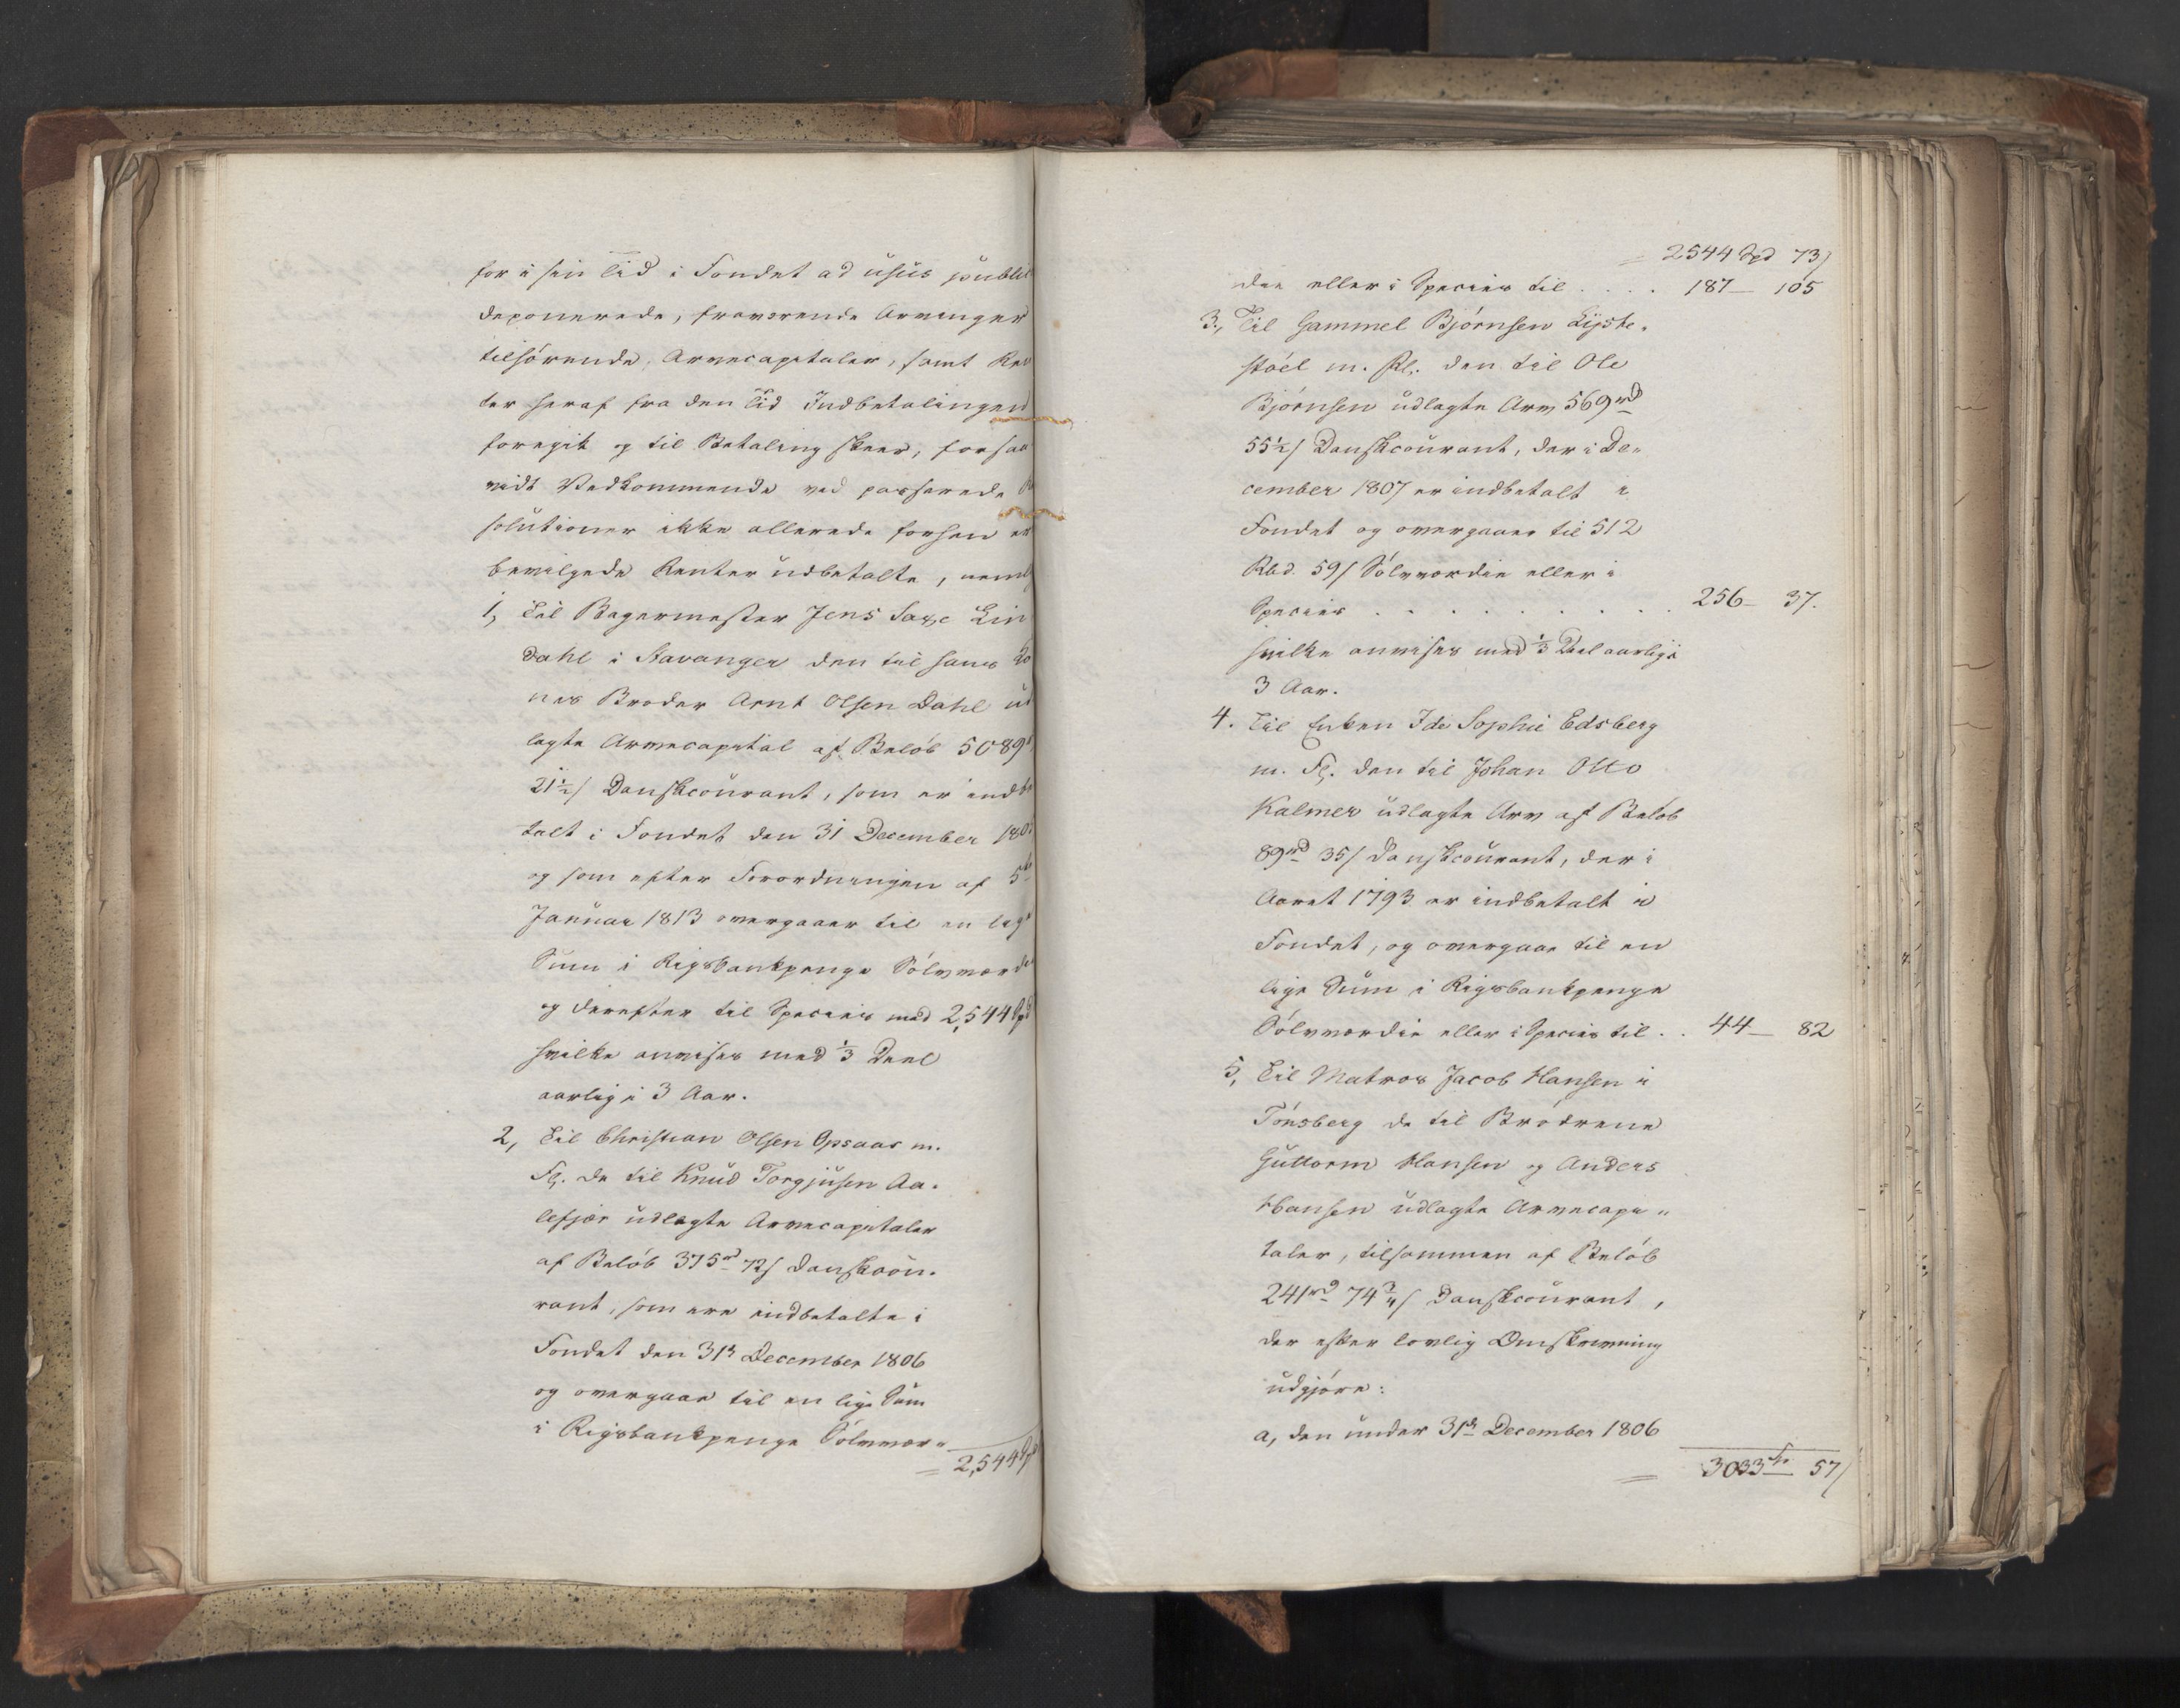 for i sin Tid i Fondet ad usus publi
deponerede, fraværende Arvinger
tilhørende, Arvecapitaler, samt Ren
ter heraf fra den Tid Indbetalingen
foregik og til Betaling skeer, forsaa
vidt Vedkommende ved passerede Re
solutioner ikke allerede forhen er
bevilgede Renter udbetalte, neml
1, Til Bagermester Jens Saxe Lin
dahl i Stavanger den til hans Ko
nes Broder Arnt Olsen Dahl ud
lagte Arvecapital af Beløb 5089
21½ s Danskcourant, som er indbe
talt i Fondet den 31 December 180
og som efter Forordningen af 5te
Januar 1813 overgaaer til en lige
Sum i Rigsbankpenge Sølvværdie
og derefter til Species med 2,544 Spd
hvilke anvises med ⅓ Deel
aarlig i 3 Aar.
2, Til Christian Olsen Opsaas m.
Fl. de til Knud Torgjusen Aa-
lefjær udlagte Arvecapitaler
af Beløb 375 rd 72 s Danskcou-
rant, som ere indbetalte i
Fondet den 31te December 1806
og overgaae til en lige Sum
i Rigsbankpenge Sølvvær-
= 2,544 Sp
= 2544 Spd 73 s
die eller i Species til . . . . 187 — 105
3., Til Gammel Bjørnsen Lyste-
støel m. Fl. den til Ole
Bjørnsen udlagte Arv 569 rd
55½ s Danskcourant, der i De-
cember 1807 er indbetalt i
Fondet og overgaaer til 512
Rbd. 59 s Sølvværdie eller i
Species . . . . . . . . . 256 — 37.
hvilke anvises med ⅓ Deel aarlig i
3 Aar.
4. Til Enken Ide Sophie Edsberg
m. Fl. den til Johan Otto
Kalmer udlagte Arv af Beløb
89 rd 35 s Danskcourant, der i
Aaret 1793 er indbetalt i
Fondet, og overgaae til en
lige Sum i Rigsbankpenge
Sølvværdie eller i Species til . . 44 — 82
5, Til Matros Jacob Hansen i
Tønsberg de til Brødrene
Guttorm Hansen og Anders
Hansen udlagte Arvecapi-
taler, tilsammen af Beløb
241 rd 74¾ s Danskcourant,
der efter lovlig Omskrivning
udgjøre:
a, den under 31te December 1806
= 3033 Sp. 57 s